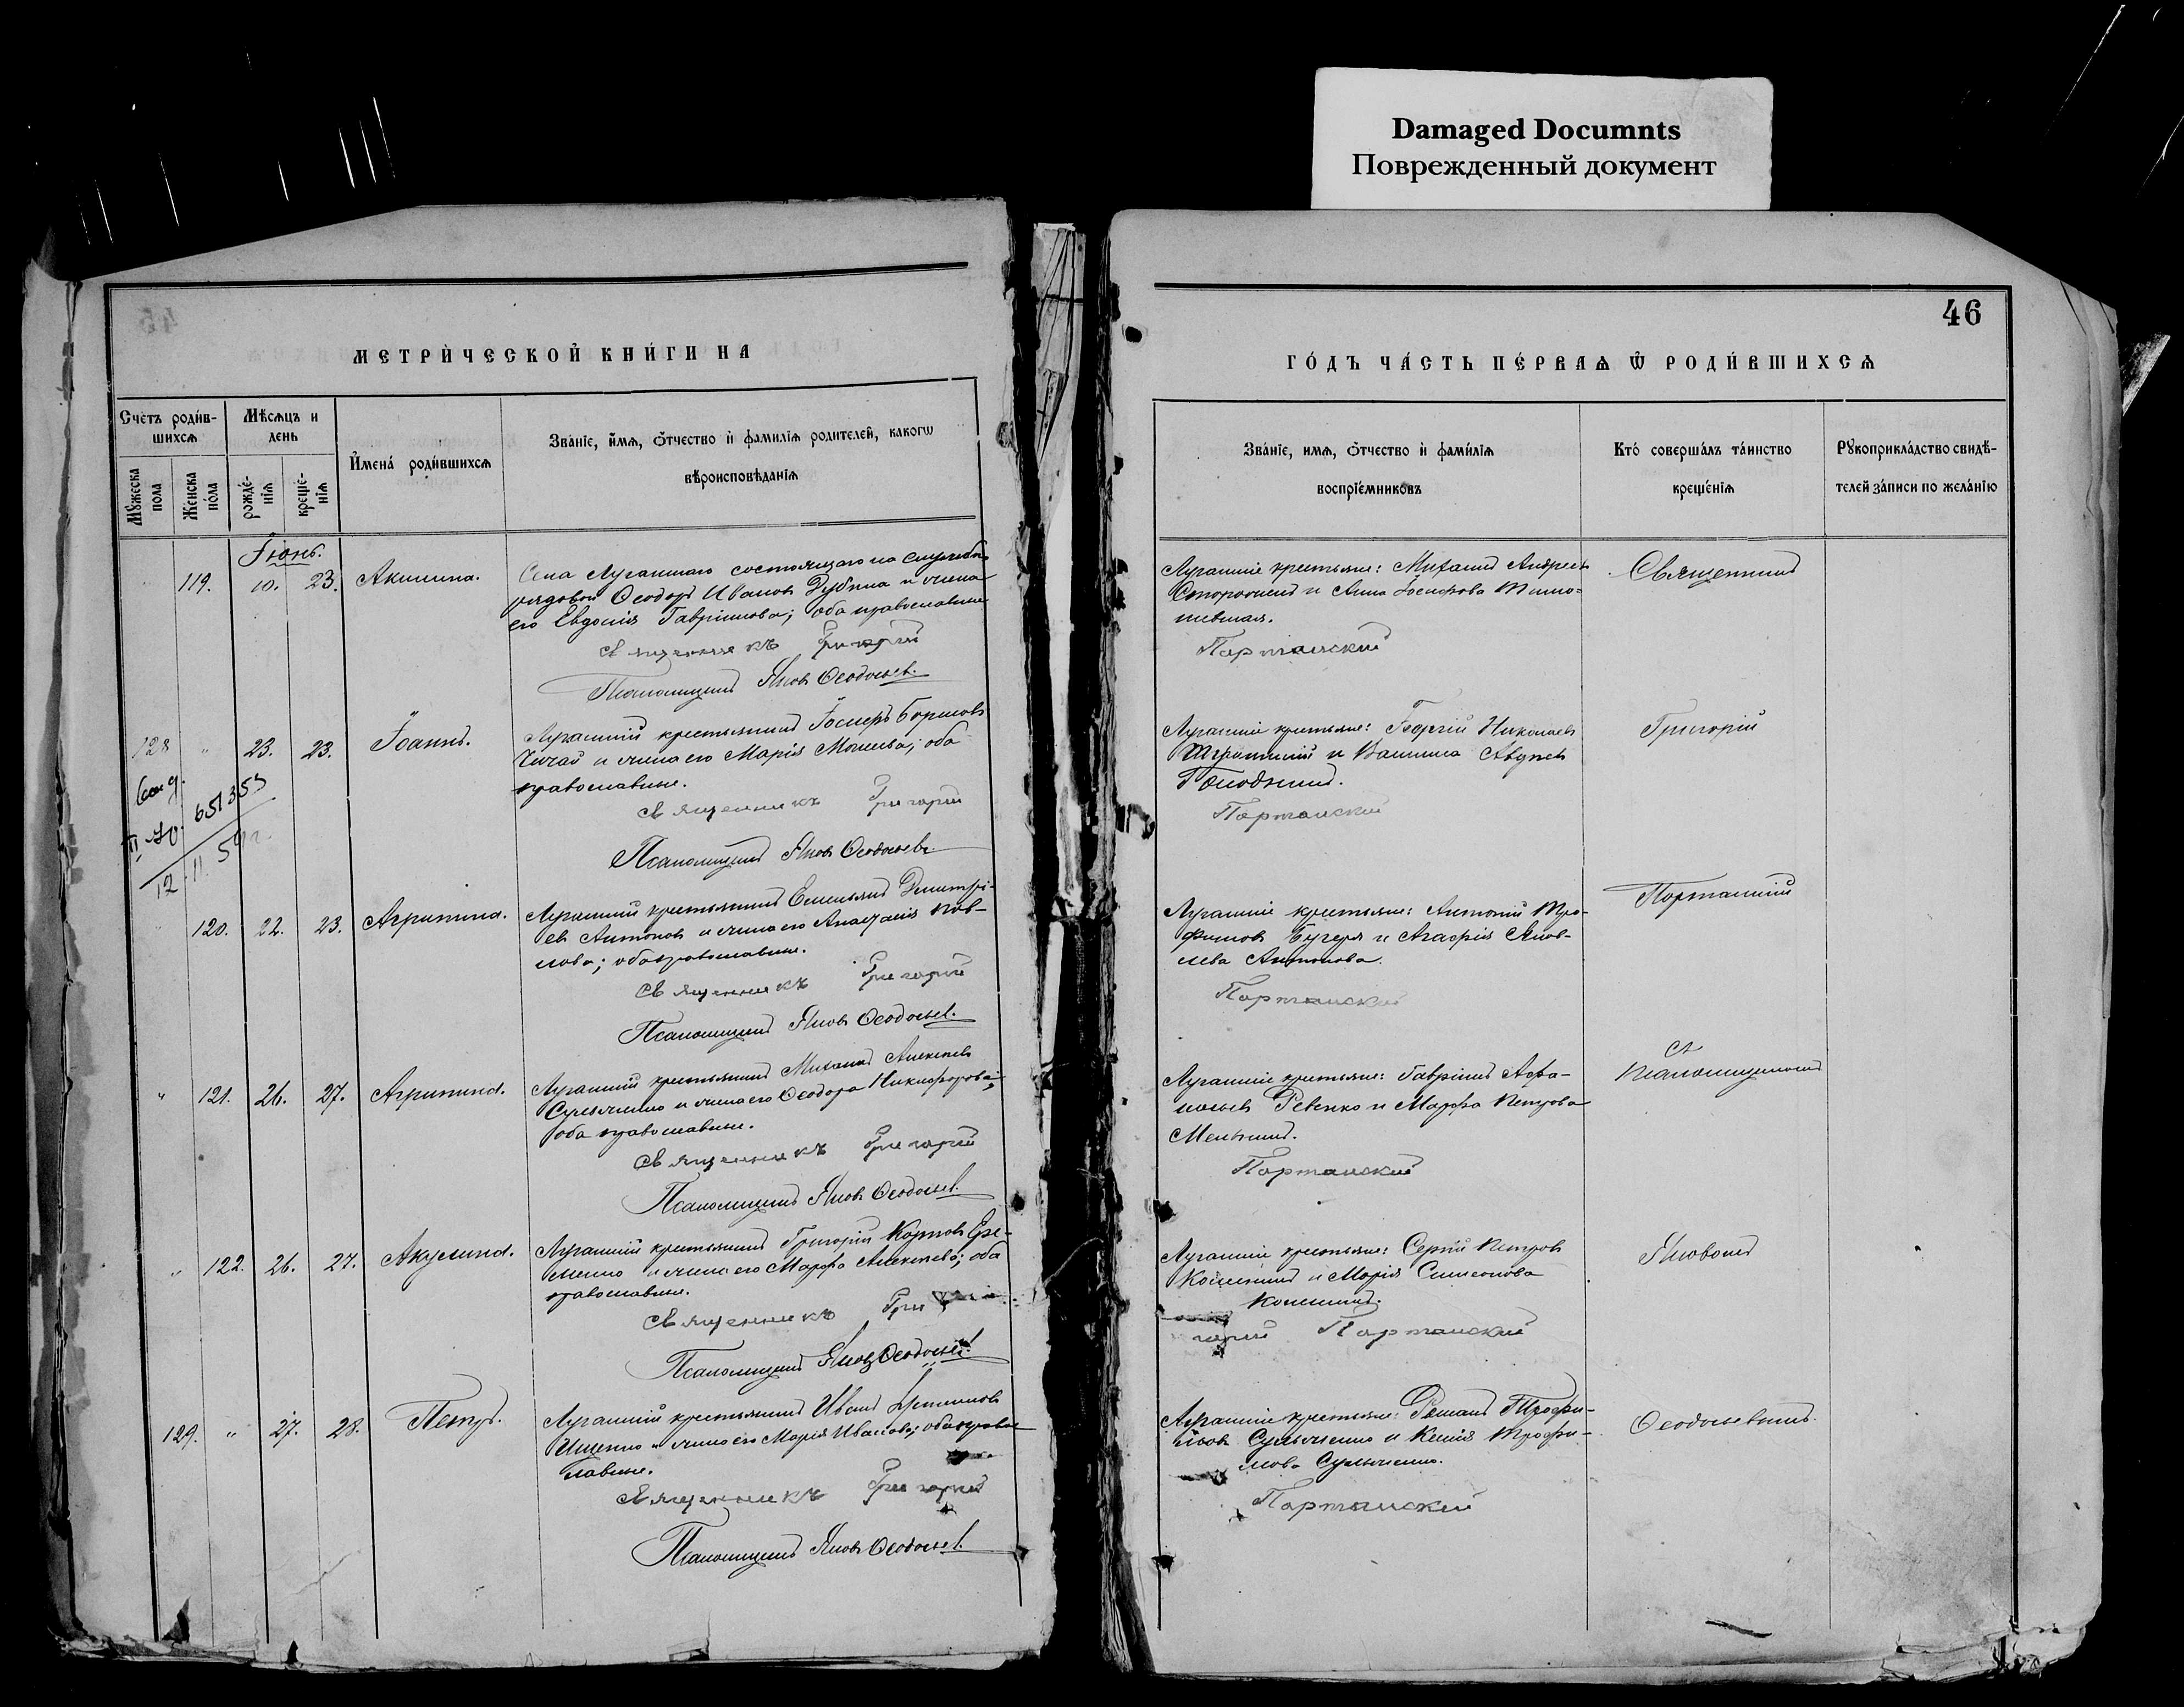 Damaged Documnts
Поврежденный документ
46
МЕТРИ́ЧЕСКОЙ КНИ́ГИ НА
Счетъ роди́в-
шихсѧ
Мѣсѧцъ и
день
Мꙋжеска
пола
Женска
по́ла
рожде́-
нїѧ
креще́-
нїѧ
И҆мена́ роди́вшихсѧ
Зва́нїе, и҆́мѧ, ѻ҆́тчество и҆ фами́лїѧ роди́телей, какогѡ
вѣроисповѣ́данїѧ
Іюнь.
119. 10. 23. Акилина.
рядовой Ѳеодоръ Ивановъ Дубина и жена
его Евдокія Гавріилова; оба православные
Священникъ Григорій
Псаломщикъ Яковъ Ѳеодосьев.
128 " 23. 23. Іоаннъ.
Луганскій крестьянинъ Іосифъ Борисовъ
Чичай и жена его Марія Моисеева; оба
православные.
Священникъ Григорій
Псаломщикъ Яковъ Ѳеодосьевъ.
651353
12.II.59г.
120. 22. 23. Агрипина.
Луганскій крестьянинъ Емельянъ Димитрі-
евъ Антоновъ и жена его Анастасія Пав-
лова; оба православные.
Священникъ Григорій
Псаломщикъ Яковъ Ѳеодосьев.
" 121. 26. 27. Агрипина.
Луганскій крестьянинъ Михаилъ Алексѣевъ
и жена его Ѳеодора Никифорова;
оба православные.
Священникъ Григорій
Псаломщикъ Яковъ Ѳеодосьев.
" 122. 26. 27. Акулина.
Луганскій крестьянинъ Григорій Карповъ Ере-
менко и жена его Марфа Алексѣева; оба
православные.
Священникъ Гри
Псаломщикъ Яковъ Ѳеодосьев.
129. " 27. 28. Петръ.
Луганскій крестьянинъ Иванъ
Ищенко и жена его Марія Иванова; оба право
славные.
Священникъ Григорій
Псаломщикъ Яковъ Ѳеодосьев.
ГО́ДЪ ЧА́СТЬ ПЕ́РВАѦ Ѡ҆ РОДИ́ВШИХСѦ
Зва́нїе, имѧ, ѻ҆́тчество и҆ фами́лїѧ
воспрїе́мниковъ
Кто́ соверша́лъ та́инство
креще́нїѧ
Рꙋкоприкла́дство свидѣ́-
телей за́писи по жела́нїю
Луганскіе крестьяне: Михаилъ Андреевъ
и Анна Іосифова Тимо-
Портанский
Священникъ
Луганскіе крестьяне: Георгій Николаевъ
и Василиса
Портанский
Григорій
Луганскіе крестьяне: Антоній Тро-
фимовъ Бугера и Агафія Яков-
лева Антонова.
Портанский
Портанскій
Луганскіе крестьяне: Гавріилъ Афа-
насьевъ Ревенко и Марфа Петрова
Мельникъ.
Портанский
съ
псаломщикомъ
Луганскіе крестьяне: Сергій Петровъ
и Марія Симеонова
горий Портанский
Яковомъ
Луганскіе крестьяне: Романъ Трофи-
мовъ и Ксенія Трофи-
мова
Портанский
Ѳеодосьевымъ.